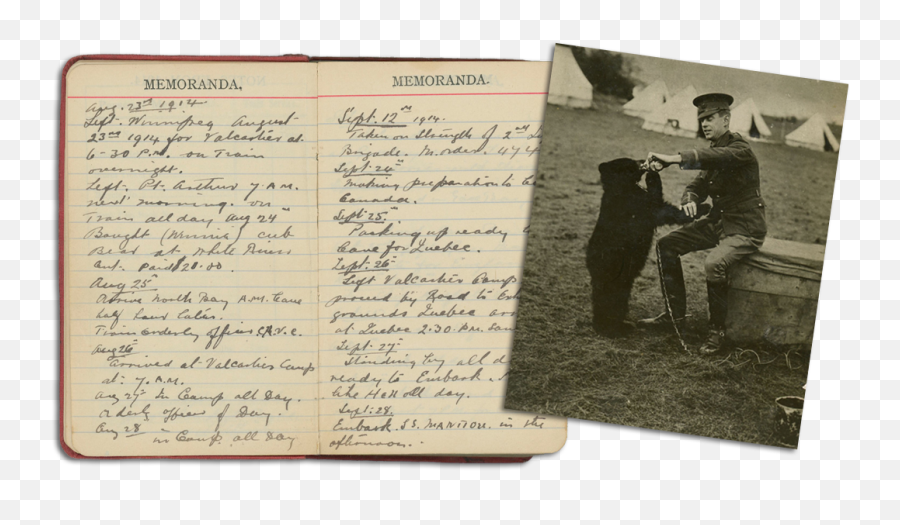 MEMORANDA.
Aug. 23rd 1914
Left. Winnipeg August
23rd 1914 for Valcartier at
6-30 P.M. on Train
overnight.
Left. Pt. Arthur 7 A.M.
next morning. on
Train all day Aug 24
Bought (Winnie) cub
Bear at White River
Ont. Paid $20.00.
Aug 25th
Arrive North Bay A.M. Leave
half hour later.
Train orderly officer C.A.V.C.
Aug 26
Arrived at Valcartier Camp
at. 7. A.M.
Aug 27 In Camp all Day.
orderly officer of Day.
Aug 28 -
in Camp all Day
MEMORANDA.
Sept. 12th 1914.
Taken on Strength of 2nd
Brigade. M. order. 474
Sept. 24th
Making preparation to
Canada.
Sept 25.
Packing up ready
Leave for Quebec.
Sept. 26th
Left Valcartier Camp
ground by Road to
grounds Quebec
at Quebec 2.30 P.M.
Sept. 27th
Standing by all
ready to Embark.
like Hell all day.
Sept. 28.
Embark S.S. MANITOU. in the
afternoon..